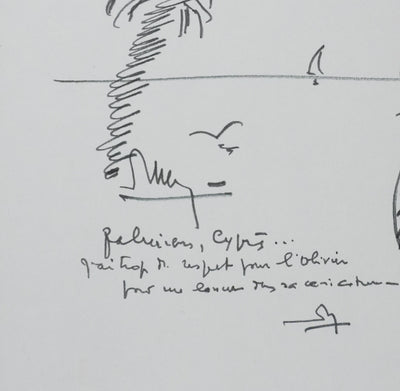 palmiers, Cyprès...
j'ai trop de respect pour l'olivier
pour me lancer dans sa caricature